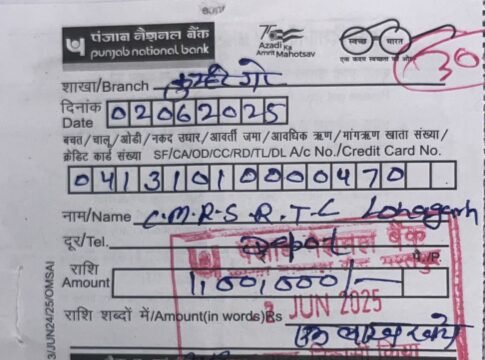 पंजाब नैशनल बैंक
punjab national bank
75 Azadi Ka Amrit Mahotsav
स्वच्छ भारत
एक कदम स्वच्छता की ओर
30
शाखा/Branch
दिनांक Date 02062025
बचत/चालू/ओडी/नकद उधार/आवर्ती जमा/आवधिक ऋण/मांगऋण खाता संख्या/
क्रेडिट कार्ड संख्या SF/CA/OD/CC/RD/TL/DL A/c No./Credit Card No.
0413101000000470
नाम/Name C.M.R.S.R.T.C Lohagarh
दूर/Tel. Depot
पंजाब नैशनल बैंक
राशि Amount 1,00,000/-
JUN 2025
राशि शब्दों में/Amount(in words)Rs
3/JUN24/25/OMSAI